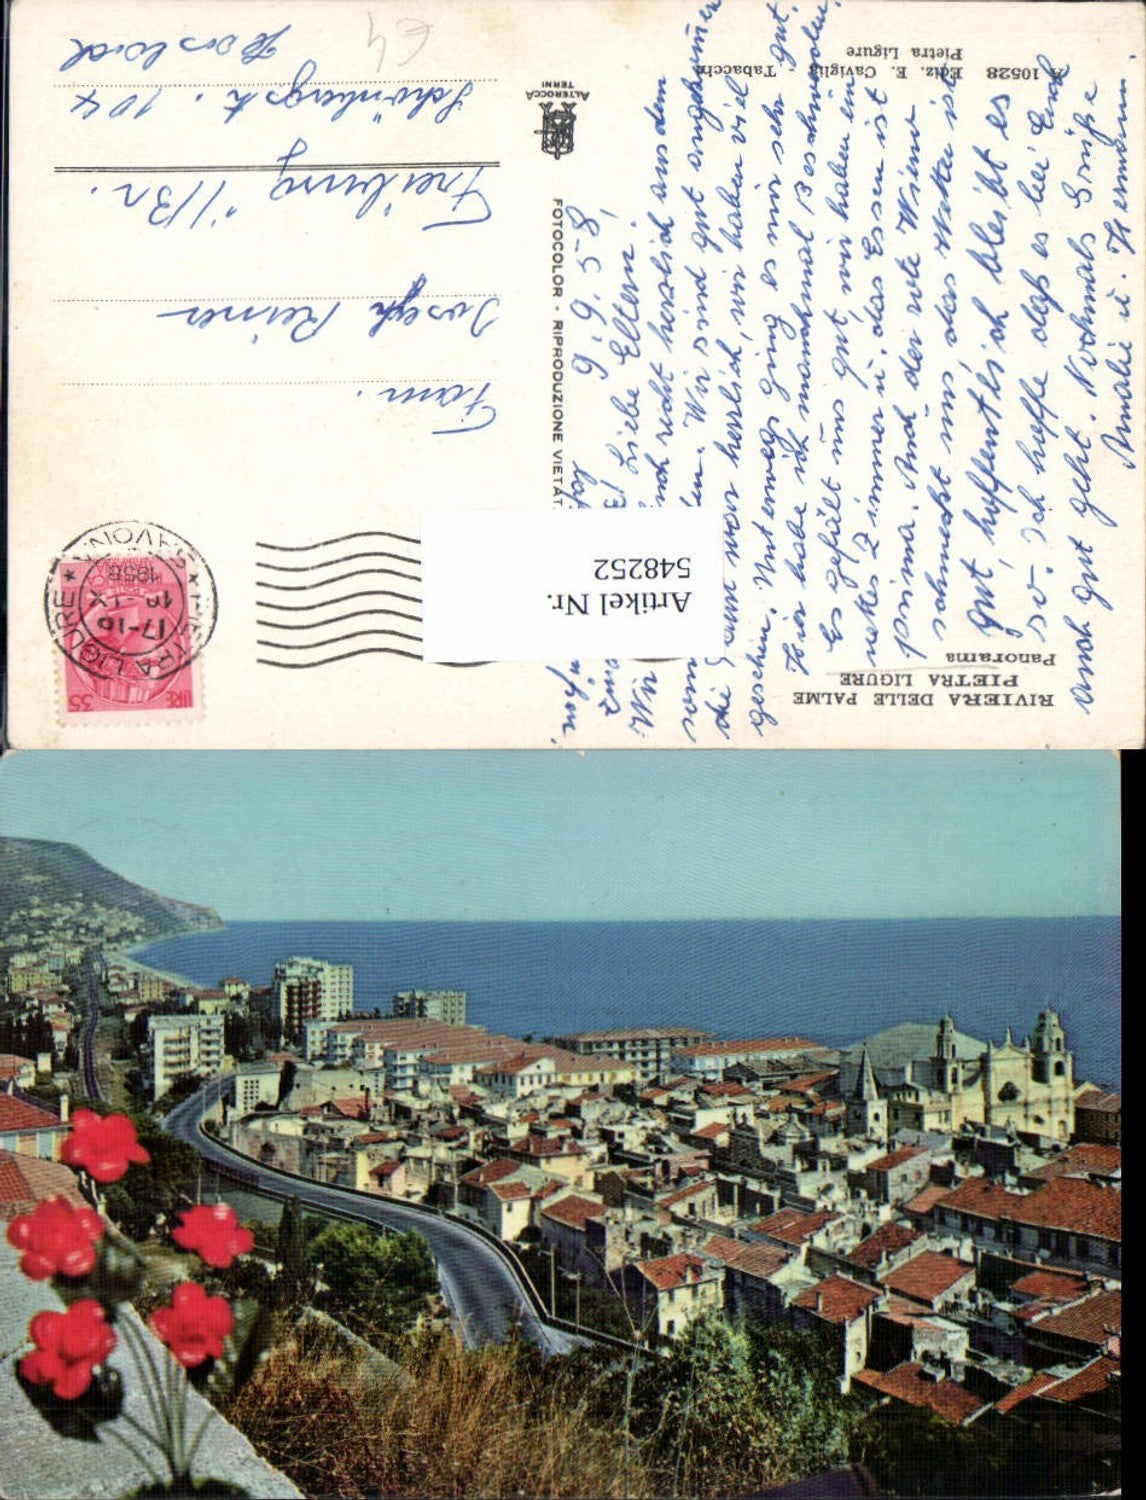 RIVIERA DELLE PALME
PIETRA LIGURE
Panorama
A 10528 Ediz. E. Caviglia - Tabacchi
Pietra Ligure
FOTOCOLOR - RIPRODUZIONE VIETAT
ALTEROCCA
TERNI
LIRE 35
PIETRA LIGURE * SAVONA *
17-18
1958
Artikel Nr.
548252
9.9.58
Liebe Eltern!
Wir recht herzlich aus dem
Wir sind gut angekommen
die war herrlich, wir haben viel
gesehen. Unterwegs ging es mir sehr gut.
Hier habe ich manchmal Beschwerden.
Es gefällt uns gut, wir haben ein
nettes Zimmer u. das Essen ist
prima. Auch der rote Wein
schmeckt uns das Wetter ist
gut, hoffentlich bleibt es
so. Ich hoffe daß es bei Euch
auch gut geht. Nochmals Grüße
Amalie u. Hermann.
Fam.
Josef Reiner
Freiburg i/Br.
104